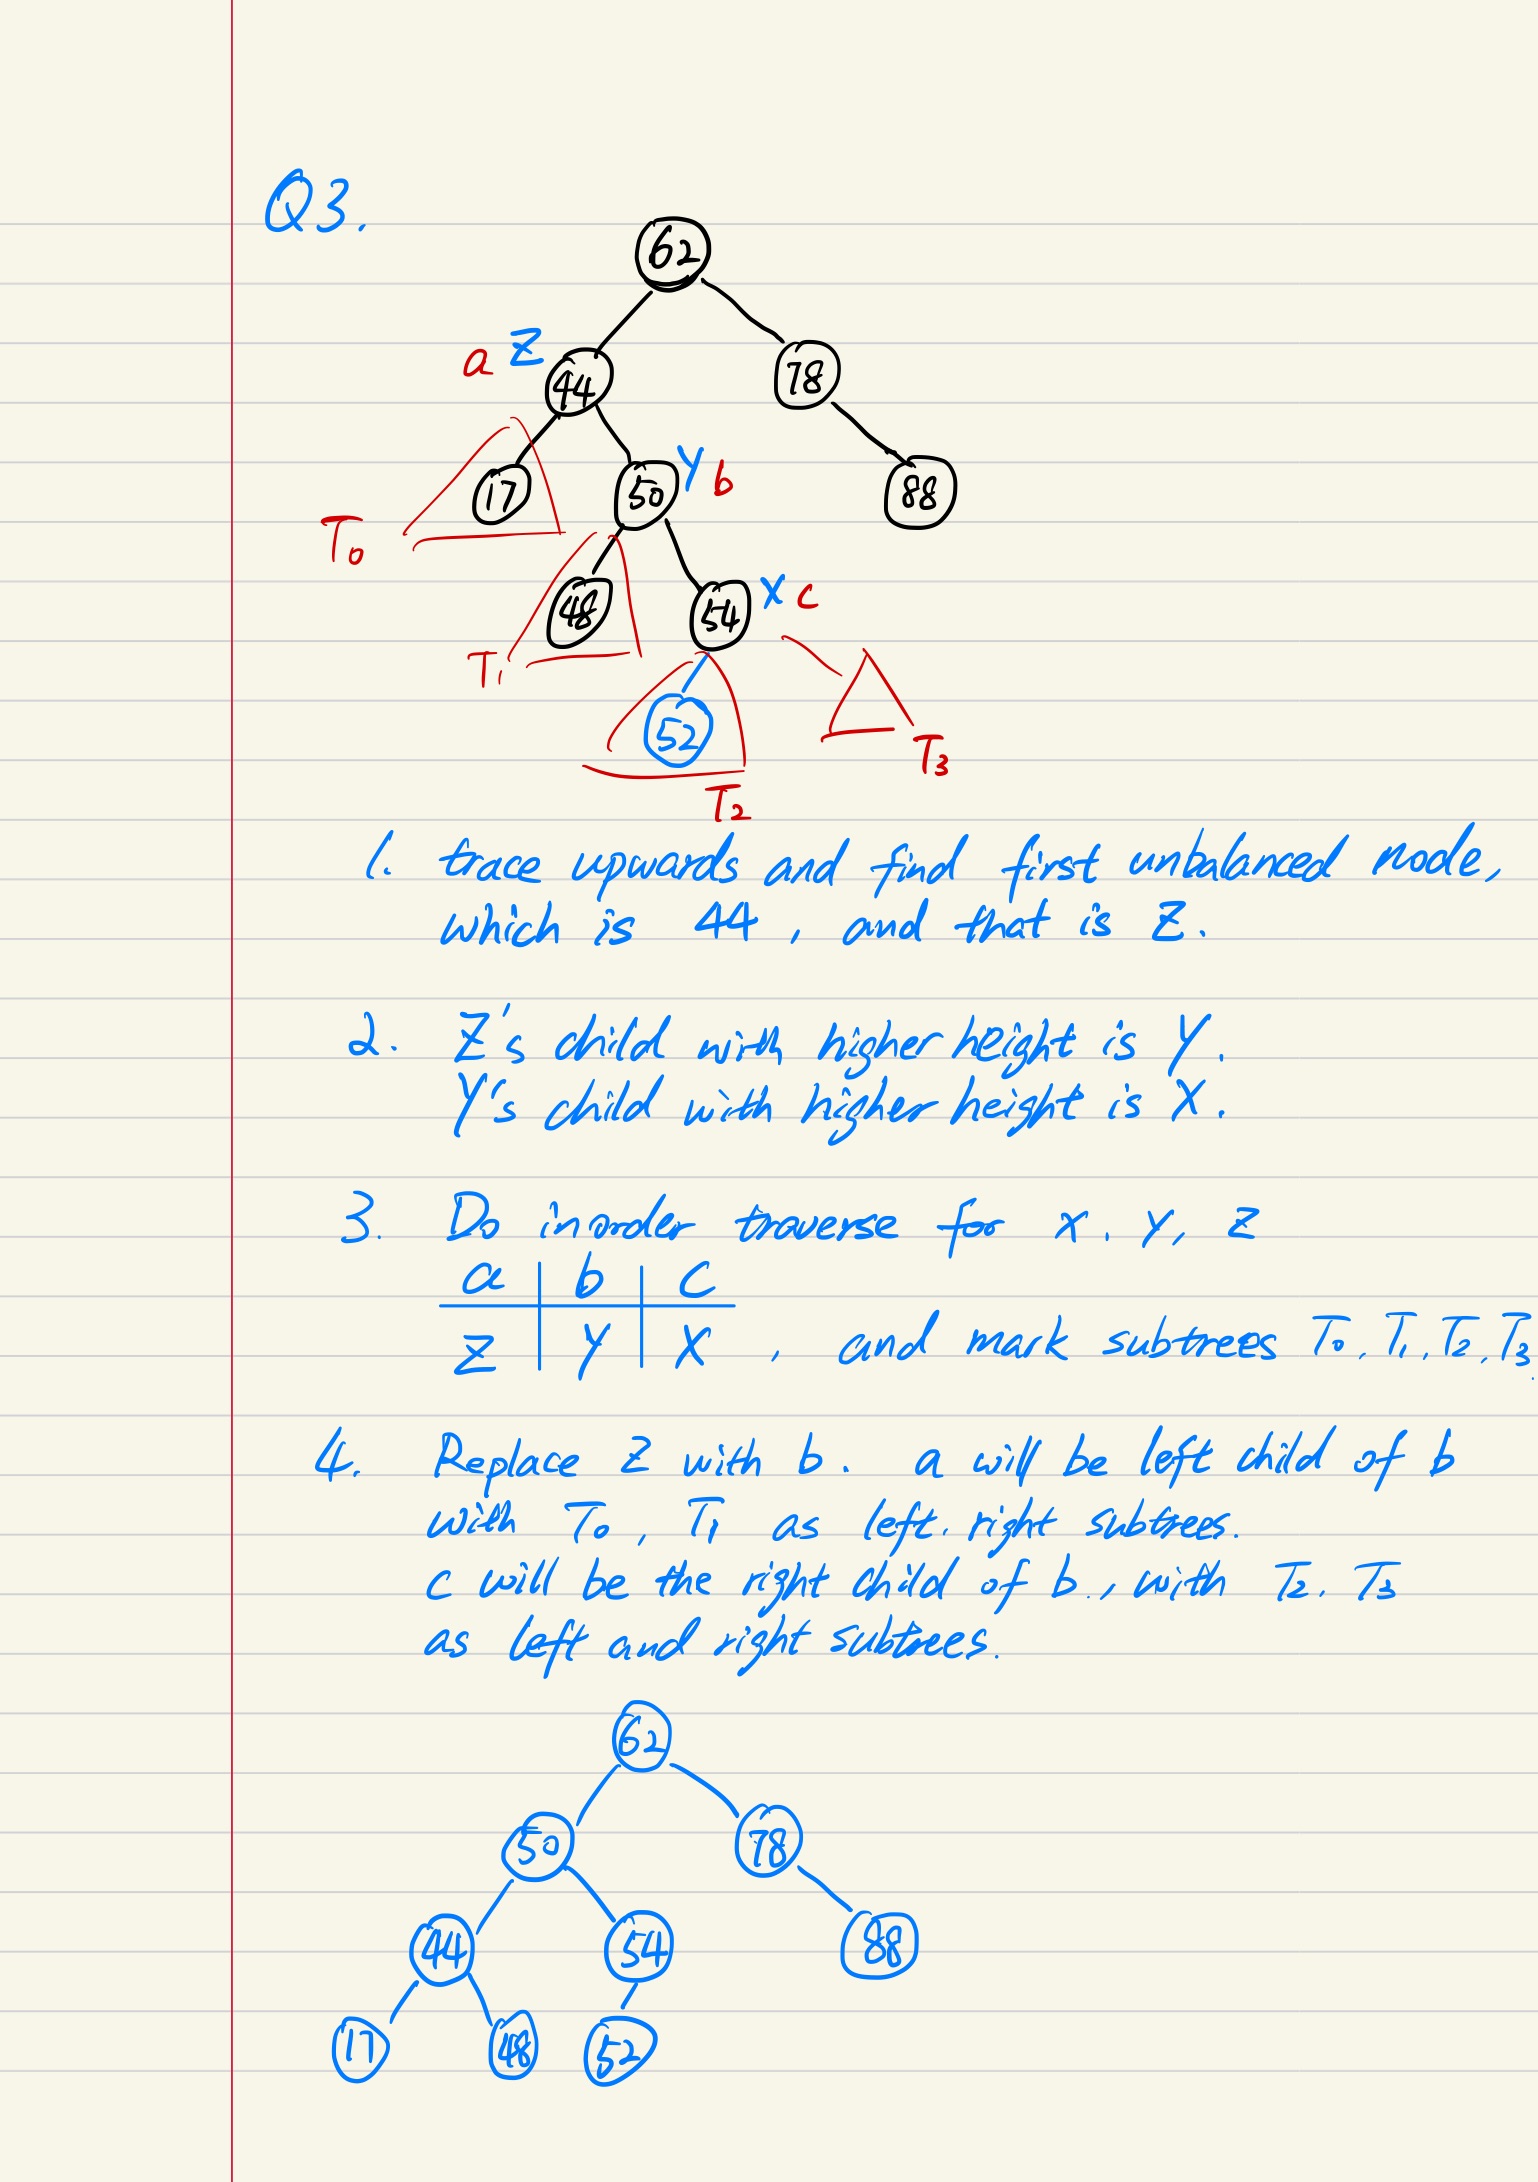 Q3.
62
a Z 44 78
17 50 Y b 88
T0
48 54 X c
T1
52 T3
T2
1. trace upwards and find first unbalanced node,
which is 44, and that is Z.
2. Z's child with higher height is Y.
Y's child with higher height is X.
3. Do inorder traverse for x, y, z
a | b | c
Z | Y | X , and mark subtrees T0, T1, T2, T3.
4. Replace Z with b. a will be left child of b
with T0, T1 as left, right subtrees.
c will be the right child of b., with T2, T3
as left and right subtrees.
62
50 78
44 54 88
17 48 52